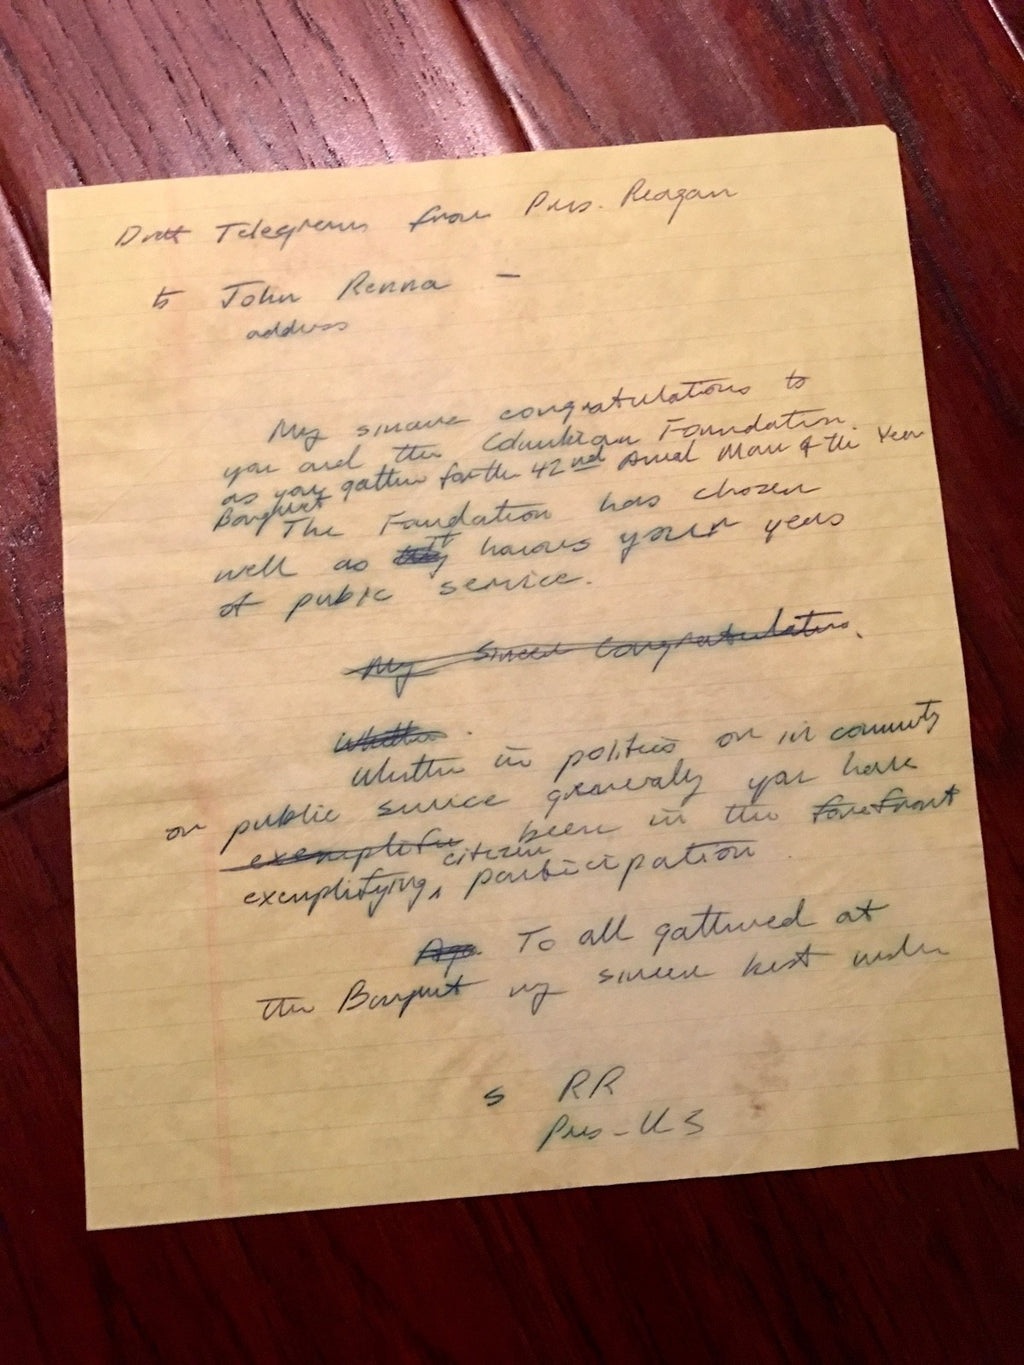 Draft Telegram from Pres. Reagan
to John Renna —
address
My sincere congratulations to
you and the Columbian Foundation.
as you gather for the 42nd Annual Man of the Year
Banquet
The Foundation has chosen
well as it honors your years
of public service.
My Sincere Congratulations.
Whether.
Whether in politics or in community
or public service generally you have
exemplified been in the forefront
exemplifying citizen participation.
To all gathered at
the Banquet my sincere best wishes
s RR
Pres - US